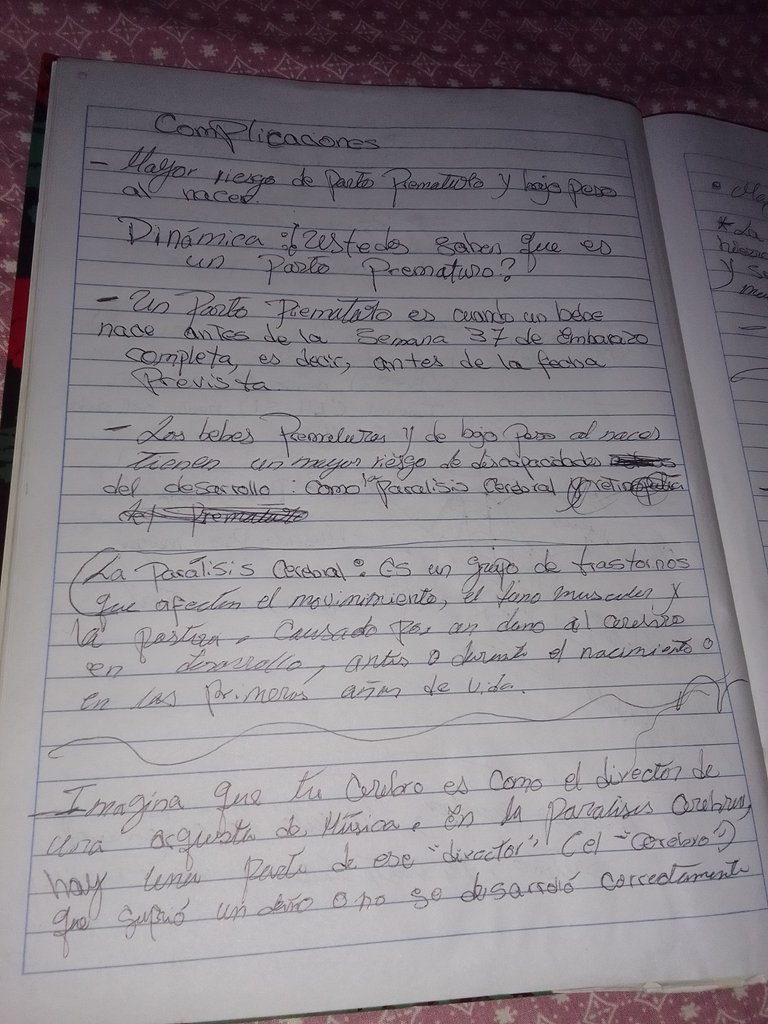 Complicaciones
- Mayor riesgo de parto Prematuro y bajo peso
al nacer.
Dinámica: ¿Ustedes saben que es
un Parto Prematuro?
- Un Parto Prematuro es cuando un bebe
nace antes de la Semana 37 de Embarazo
completa, es decir, antes de la fecha
Prevista.
- Los bebes Prematuros y de bajo Peso al nacer
tienen un mayor riesgo de discapacidades
del desarrollo: como la Paralisis Cerebral y retinopatia
del Prematuro
(La Parálisis Cerebral: es un grupo de trastornos
que afectan el movimimiento, el tono muscular y
la postura, Causado por un daño al cerebro
en desarrollo, antes o durante el nacimiento o
en los primeros años de vida.
- Imagina que tu Cerebro es Como el director de
una orquesta de Música. En la Paralisis Cerebral,
hay una parte de ese "director" (el "Cerebro")
que sufrió un daño o no se desarroló correctamente
* La
y se